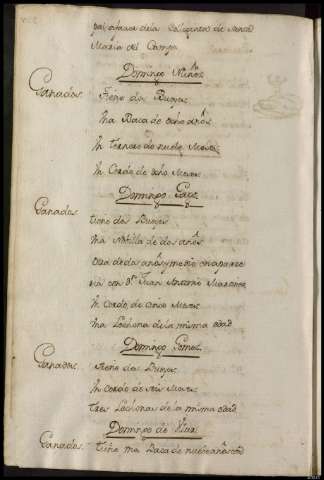 Maria del Campo
Domingo Nuñez
Ganados
tiene dos Bueyes
Una Baca de ocho años
Un ternero de nuebe Meses
Un Cerdo de ocho Meses
Domingo
Ganados
tiene dos Bueyes
Una Nobilla de dos años
otra de dos años y medio en aparze
ria con Dn Juan Antonio
Un Cerdo de Meses
Una Lechona de la misma edad
Domingo Gomez
Ganados
tiene dos Bueyes
Un Cerdo de seis Meses
tres Lechonas de la misma edad
Domingo de
Ganados
tiene una Baca de nuebe años con